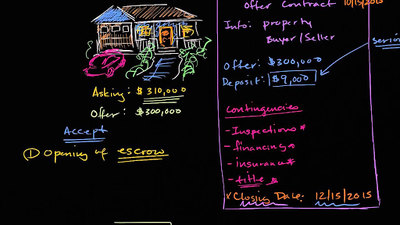 Asking: $310,000
Offer: $300,000
Accept
① Opening of escrow
Offer Contract 10/15/2015
Info: property
Buyer/Seller
Offer: $300,000
Deposit: $9,000
Contingencies
- Inspections*
- financing*
- insurance*
- title *
* Closing Date: 12/15/2015